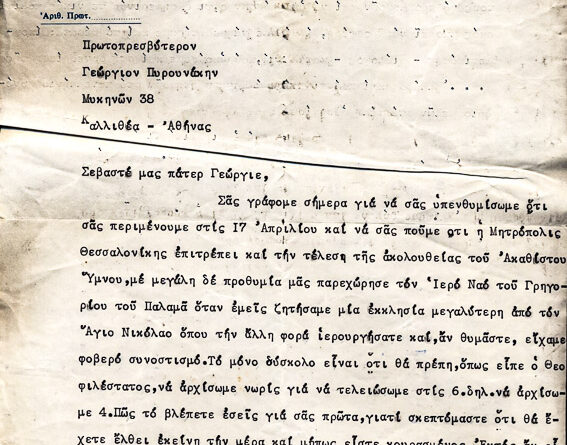 Ἀριθ. Πρωτ.
Πρωτοπρεσβύτερον
Γεώργιον Πυρουνάκην
Μυκηνῶν 38
Καλλιθέα - Ἀθήνας
Σεβαστέ μας πάτερ Γεώργιε,
Σᾶς γράφομε σήμερα γιά νά σᾶς ὑπενθυμίσωμε ὅτι
σᾶς περιμένουμε στίς 17 Ἀπριλίου καί νά σᾶς ποῦμε οτι ἡ Μητρόπολις
Θεσσαλονίκης ἐπιτρέπει καί τήν τέλεση τῆς ἀκολουθείας τοῦ Ἀκαθίστου
Ὕμνου,μέ μεγάλη δέ προθυμία μᾶς παρεχώρησε τόν Ἱερό Ναό τοῦ Γρηγο-
ρίου τοῦ Παλαμᾶ ὅταν ἐμεῖς ζητήσαμε μία ἐκκλησία μεγαλύτερη ἀπό τόν
Ἅγιο Νικόλαο ὅπου τήν ἄλλη φορά ἱερουργήσατε καί,ἄν θυμᾶστε, εἴχαμε
φοβερό συνοστισμό.Τό μόνο δύσκολο εἶναι ὅτι θά πρέπη,ὅπως εἶπε ὁ Θεο
φιλέστατος,νά ἀρχίσωμε νωρίς γιά νά τελειώσωμε στίς 6.δηλ.νά ἀρχίσω-
με 4.Πῶς τό βλέπετε ἐσεῖς γιά σᾶς πρῶτα,γιατί σκεπτόμαστε ὅτι θά ἔ-
χετε ἔλθει ἐκείνη τήν μέρα καί μήπως εἶστε κουρασμένος